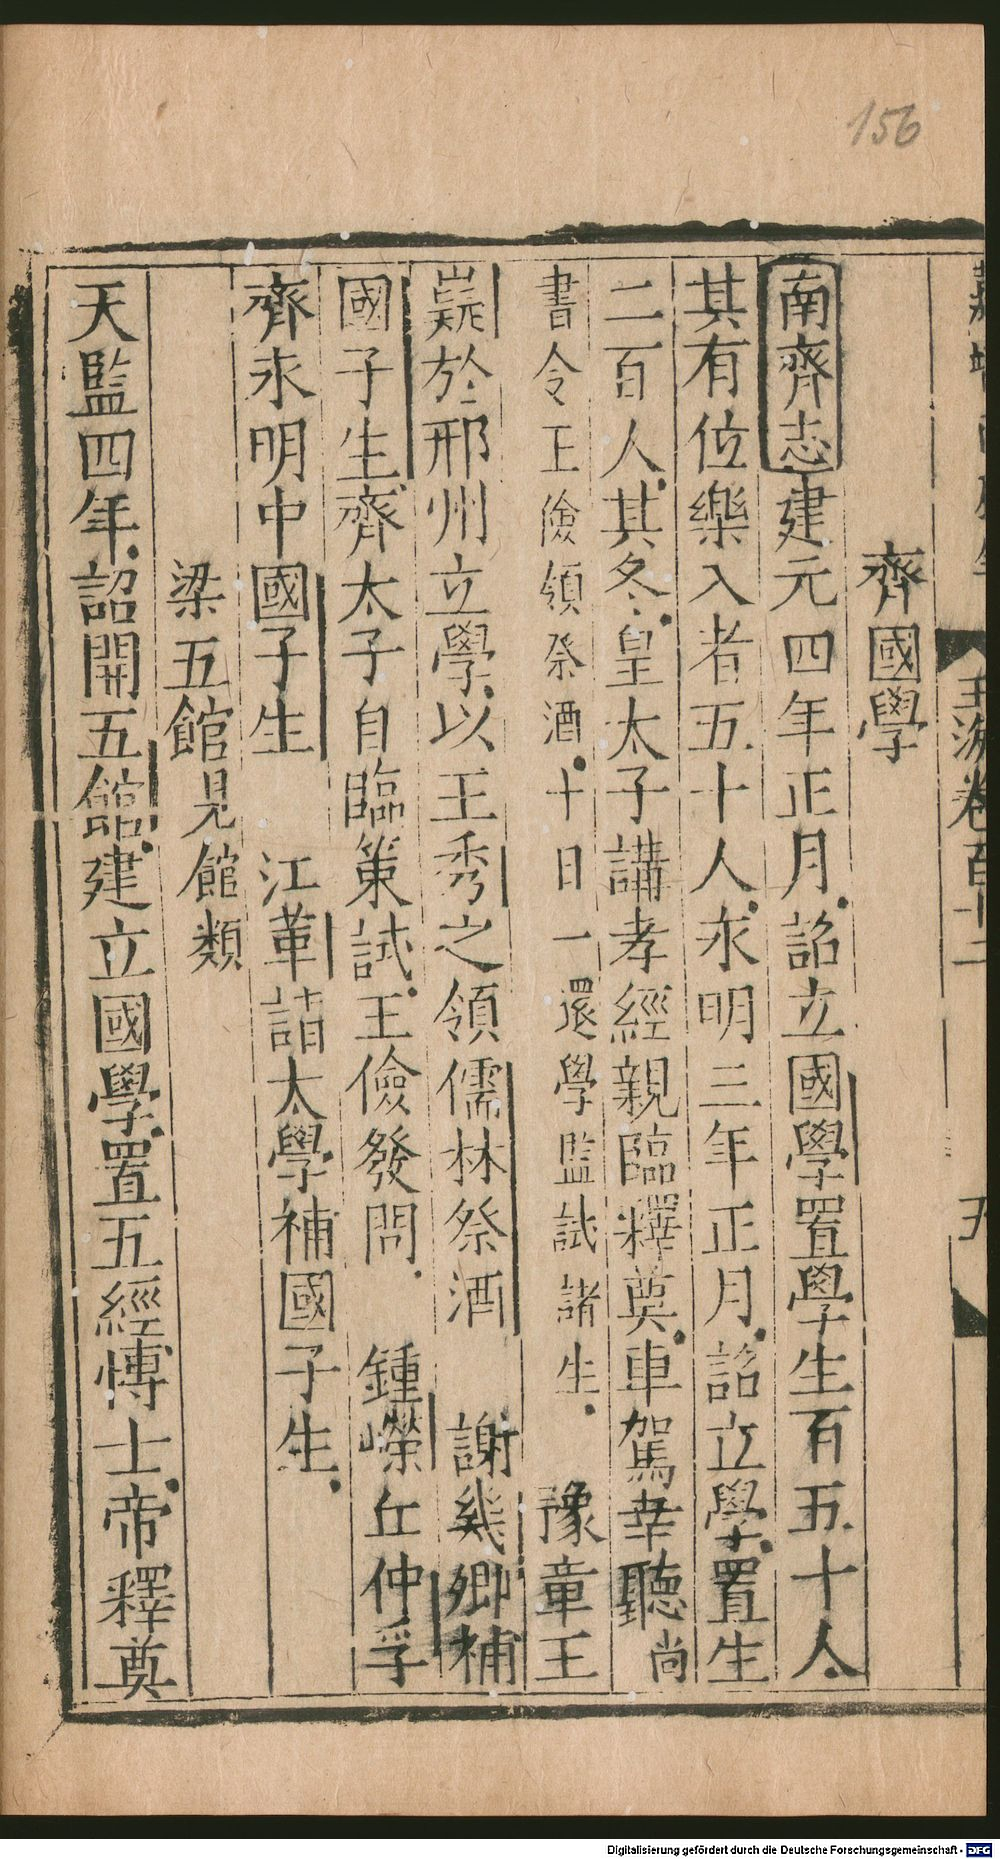 156
玉海卷百十二
五
齊國學
南齊志建元四年正月詔立國學置學生百五十人
其有位樂入者五十人永明三年正月詔立學置生
二百人其冬皇太子講孝經親臨釋奠車駕幸聽尚
書令王儉領祭酒十日一還學監試諸生 豫章王
嶷於荊州立學以王秀之領儒林祭酒 謝幾卿補
國子生齊太子自臨策試王儉發問 鍾嶸丘仲孚
齊永明中國子生 江革詣太學補國子生
梁五館見館類
天監四年詔開五館建立國學置五經博士帝釋奠
Digitalisierung gefördert durch die Deutsche Forschungsgemeinschaft - DFG